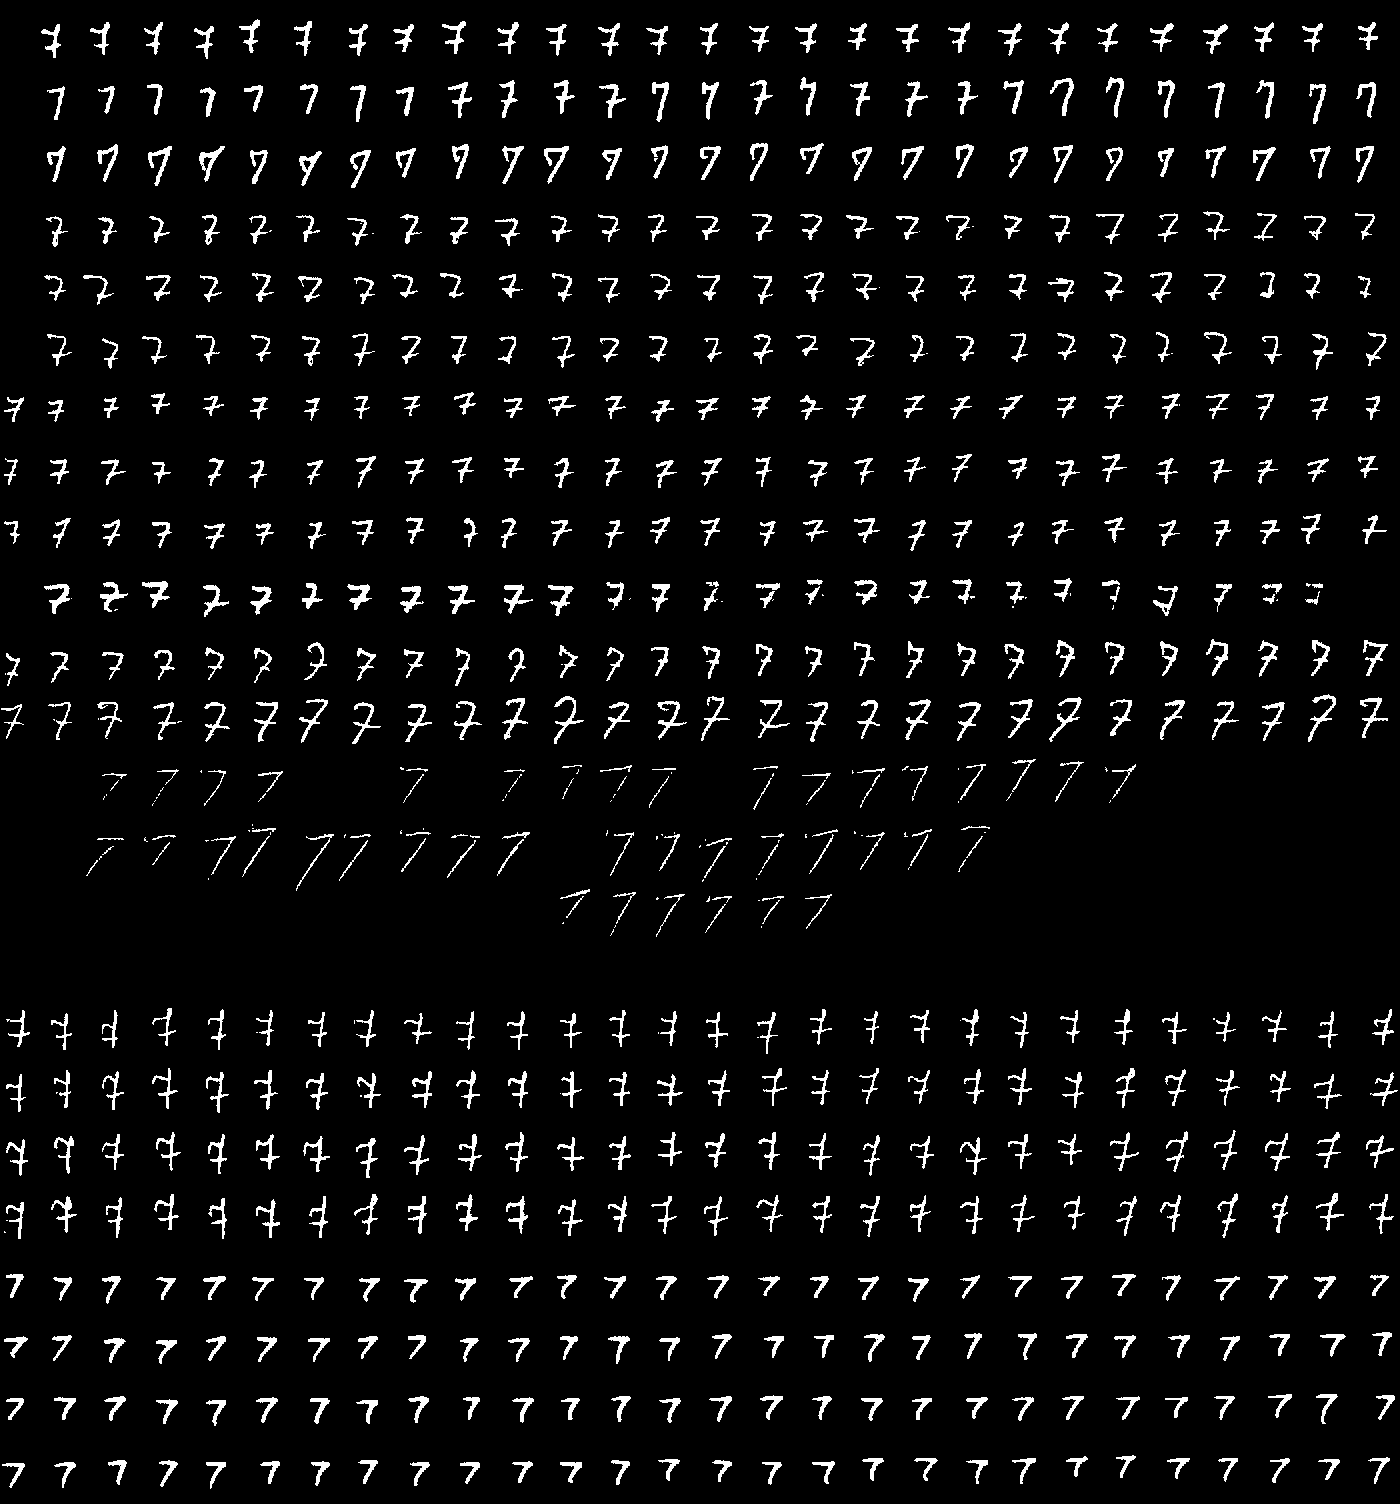 7 7 7 7 7 7 7 7 7 7 7 7 7 7 7 7 7 7 7 7 7 7 7 7 7 7 7
7 7 7 7 7 7 7 7 7 7 7 7 7 7 7 7 7 7 7 7 7 7 7 7 7 7 7
7 7 7 7 7 7 7 7 7 7 7 7 7 7 7 7 7 7 7 7 7 7 7 7 7 7 7
7 7 7 7 7 7 7 7 7 7 7 7 7 7 7 7 7 7 7 7 7 7 7 7 7 7 7
7 7 7 7 7 7 7 7 7 7 7 7 7 7 7 7 7 7 7 7 7 7 7 7 7 7 7
7 7 7 7 7 7 7 7 7 7 7 7 7 7 7 7 7 7 7 7 7 7 7 7 7 7 7
7 7 7 7 7 7 7 7 7 7 7 7 7 7 7 7 7 7 7 7 7 7 7 7 7 7 7 7
7 7 7 7 7 7 7 7 7 7 7 7 7 7 7 7 7 7 7 7 7 7 7 7 7 7 7 7
7 7 7 7 7 7 7 7 7 7 7 7 7 7 7 7 7 7 7 7 7 7 7 7 7 7 7 7
7 7 7 7 7 7 7 7 7 7 7 7 7 7 7 7 7 7 7 7 7 7 7 7 7 7
7 7 7 7 7 7 7 7 7 7 7 7 7 7 7 7 7 7 7 7 7 7 7 7 7 7 7 7
7 7 7 7 7 7 7 7 7 7 7 7 7 7 7 7 7 7 7 7 7 7 7 7 7 7 7 7
7 7 7 7 7 7 7 7 7 7 7 7 7 7 7 7 7
7 7 7 7 7 7 7 7 7 7 7 7 7 7 7 7 7
7 7 7 7 7 7
7 7 7 7 7 7 7 7 7 7 7 7 7 7 7 7 7 7 7 7 7 7 7 7 7 7 7 7
7 7 7 7 7 7 7 7 7 7 7 7 7 7 7 7 7 7 7 7 7 7 7 7 7 7 7 7
7 7 7 7 7 7 7 7 7 7 7 7 7 7 7 7 7 7 7 7 7 7 7 7 7 7 7 7
7 7 7 7 7 7 7 7 7 7 7 7 7 7 7 7 7 7 7 7 7 7 7 7 7 7 7 7
7 7 7 7 7 7 7 7 7 7 7 7 7 7 7 7 7 7 7 7 7 7 7 7 7 7 7 7
7 7 7 7 7 7 7 7 7 7 7 7 7 7 7 7 7 7 7 7 7 7 7 7 7 7 7 7
7 7 7 7 7 7 7 7 7 7 7 7 7 7 7 7 7 7 7 7 7 7 7 7 7 7 7 7
7 7 7 7 7 7 7 7 7 7 7 7 7 7 7 7 7 7 7 7 7 7 7 7 7 7 7 7